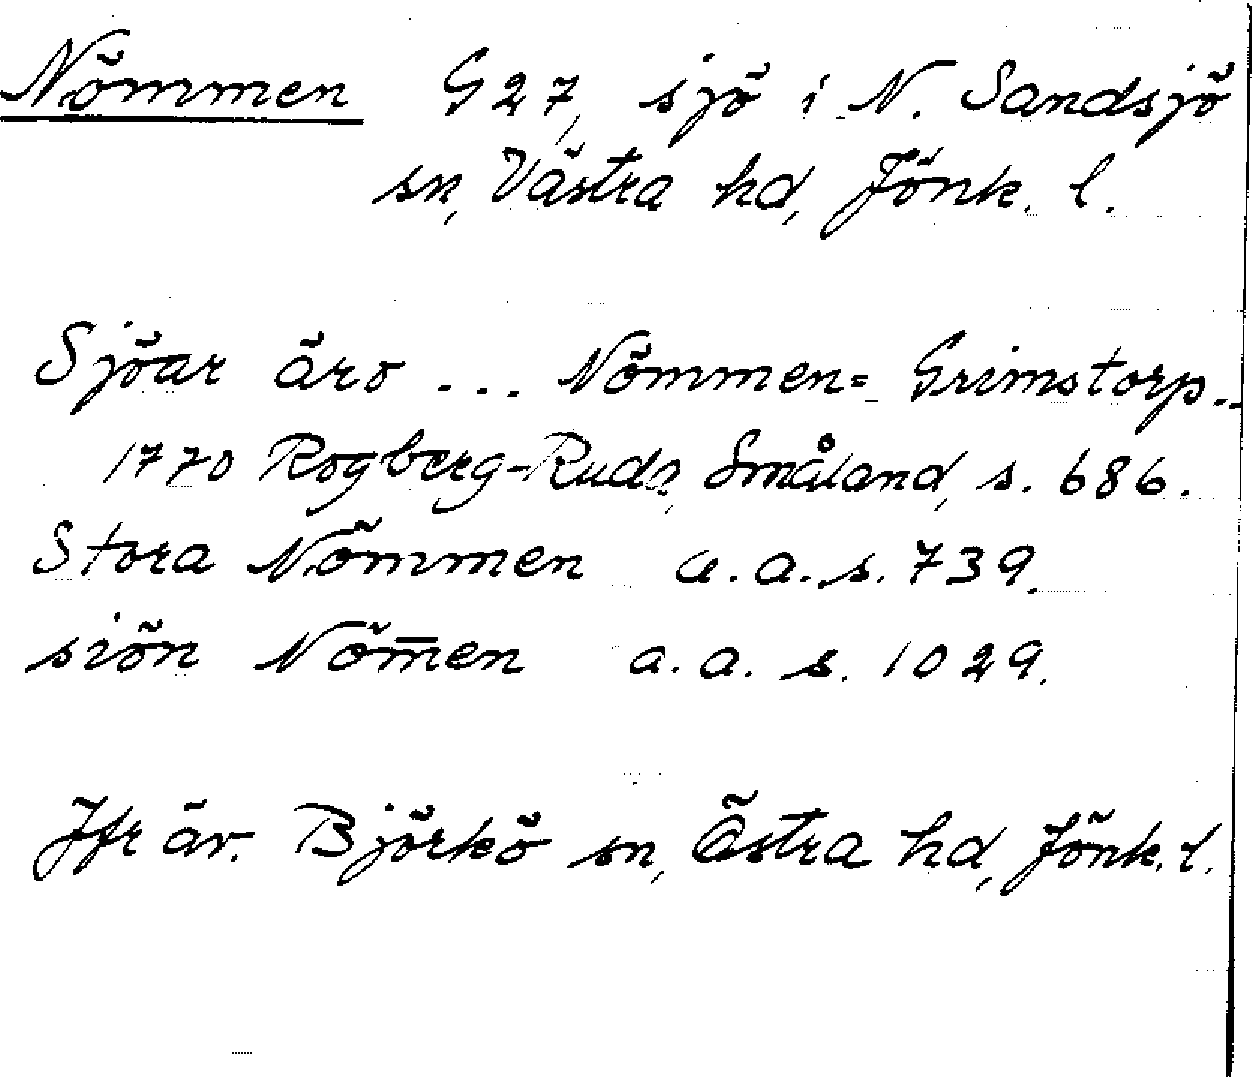 Nömmen G27, sjö i N. Sandsjö
sn, Västra hd, Jönk. l.
Sjöar äro ... Nömmen= Grimstorp..
1770 Rogberg-Ruda, Småland, s. 686.
Stora Nömmen a.a.s. 739.
siön Nöm̅en a.a. s. 1029.
Jfr äv. Björkö sn, Östra hd, Jönk. l.